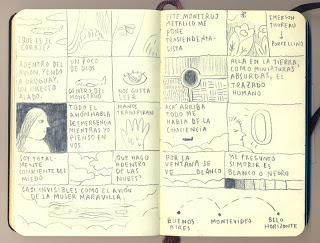 ¿QUE ES EL
CORRIE?
ADENTRO DEL
AVION, YENDO
A URUGUAY,
UN INSECTO
ALADO.
UN POCO
DE DIOS
DENTRO DEL
MONSTRUO
NOS GUSTA
LEER
TODO EL
AVION HABLA
DE EMERGENCIA
MIENTRAS YO
PIENSO EN
VOS.
MANOS
TRANSPIRAN
SOY TOTAL-
MENTE
CONSCIENTE DEL
MIEDO
¿QUE HAGO
ADENTRO
DE LAS
NUBES?
CASI INVISIBLES COMO EL AVION
DE LA MUJER MARAVILLA.
ESTE MONSTRUO
METALICO ME
PONE
TRASCENDENTA-
LISTA
EMERSON
THOREAU
Y
PORCELLINO
ALLA EN LA TIERRA,
COMO MINIATURAS
ABSURDAS, EL
TRAZADO
HUMANO
ACA ARRIBA
TODO ME
HABLA DE LA
CONCIENCIA
POR LA
VENTANA SE
VE BLANCO
ME PREGUNTO
SI MORIR ES
BLANCO O NEGRO
BUENOS
AIRES
MONTEVIDEO
BELO
HORIZONTE